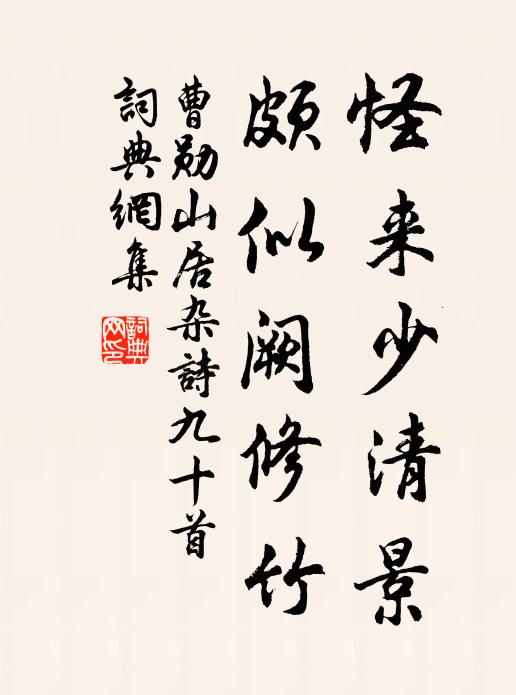 怪来少清景
颇似阙修竹
曹勋山居杂詩九十首
詞典網集
詞典網印